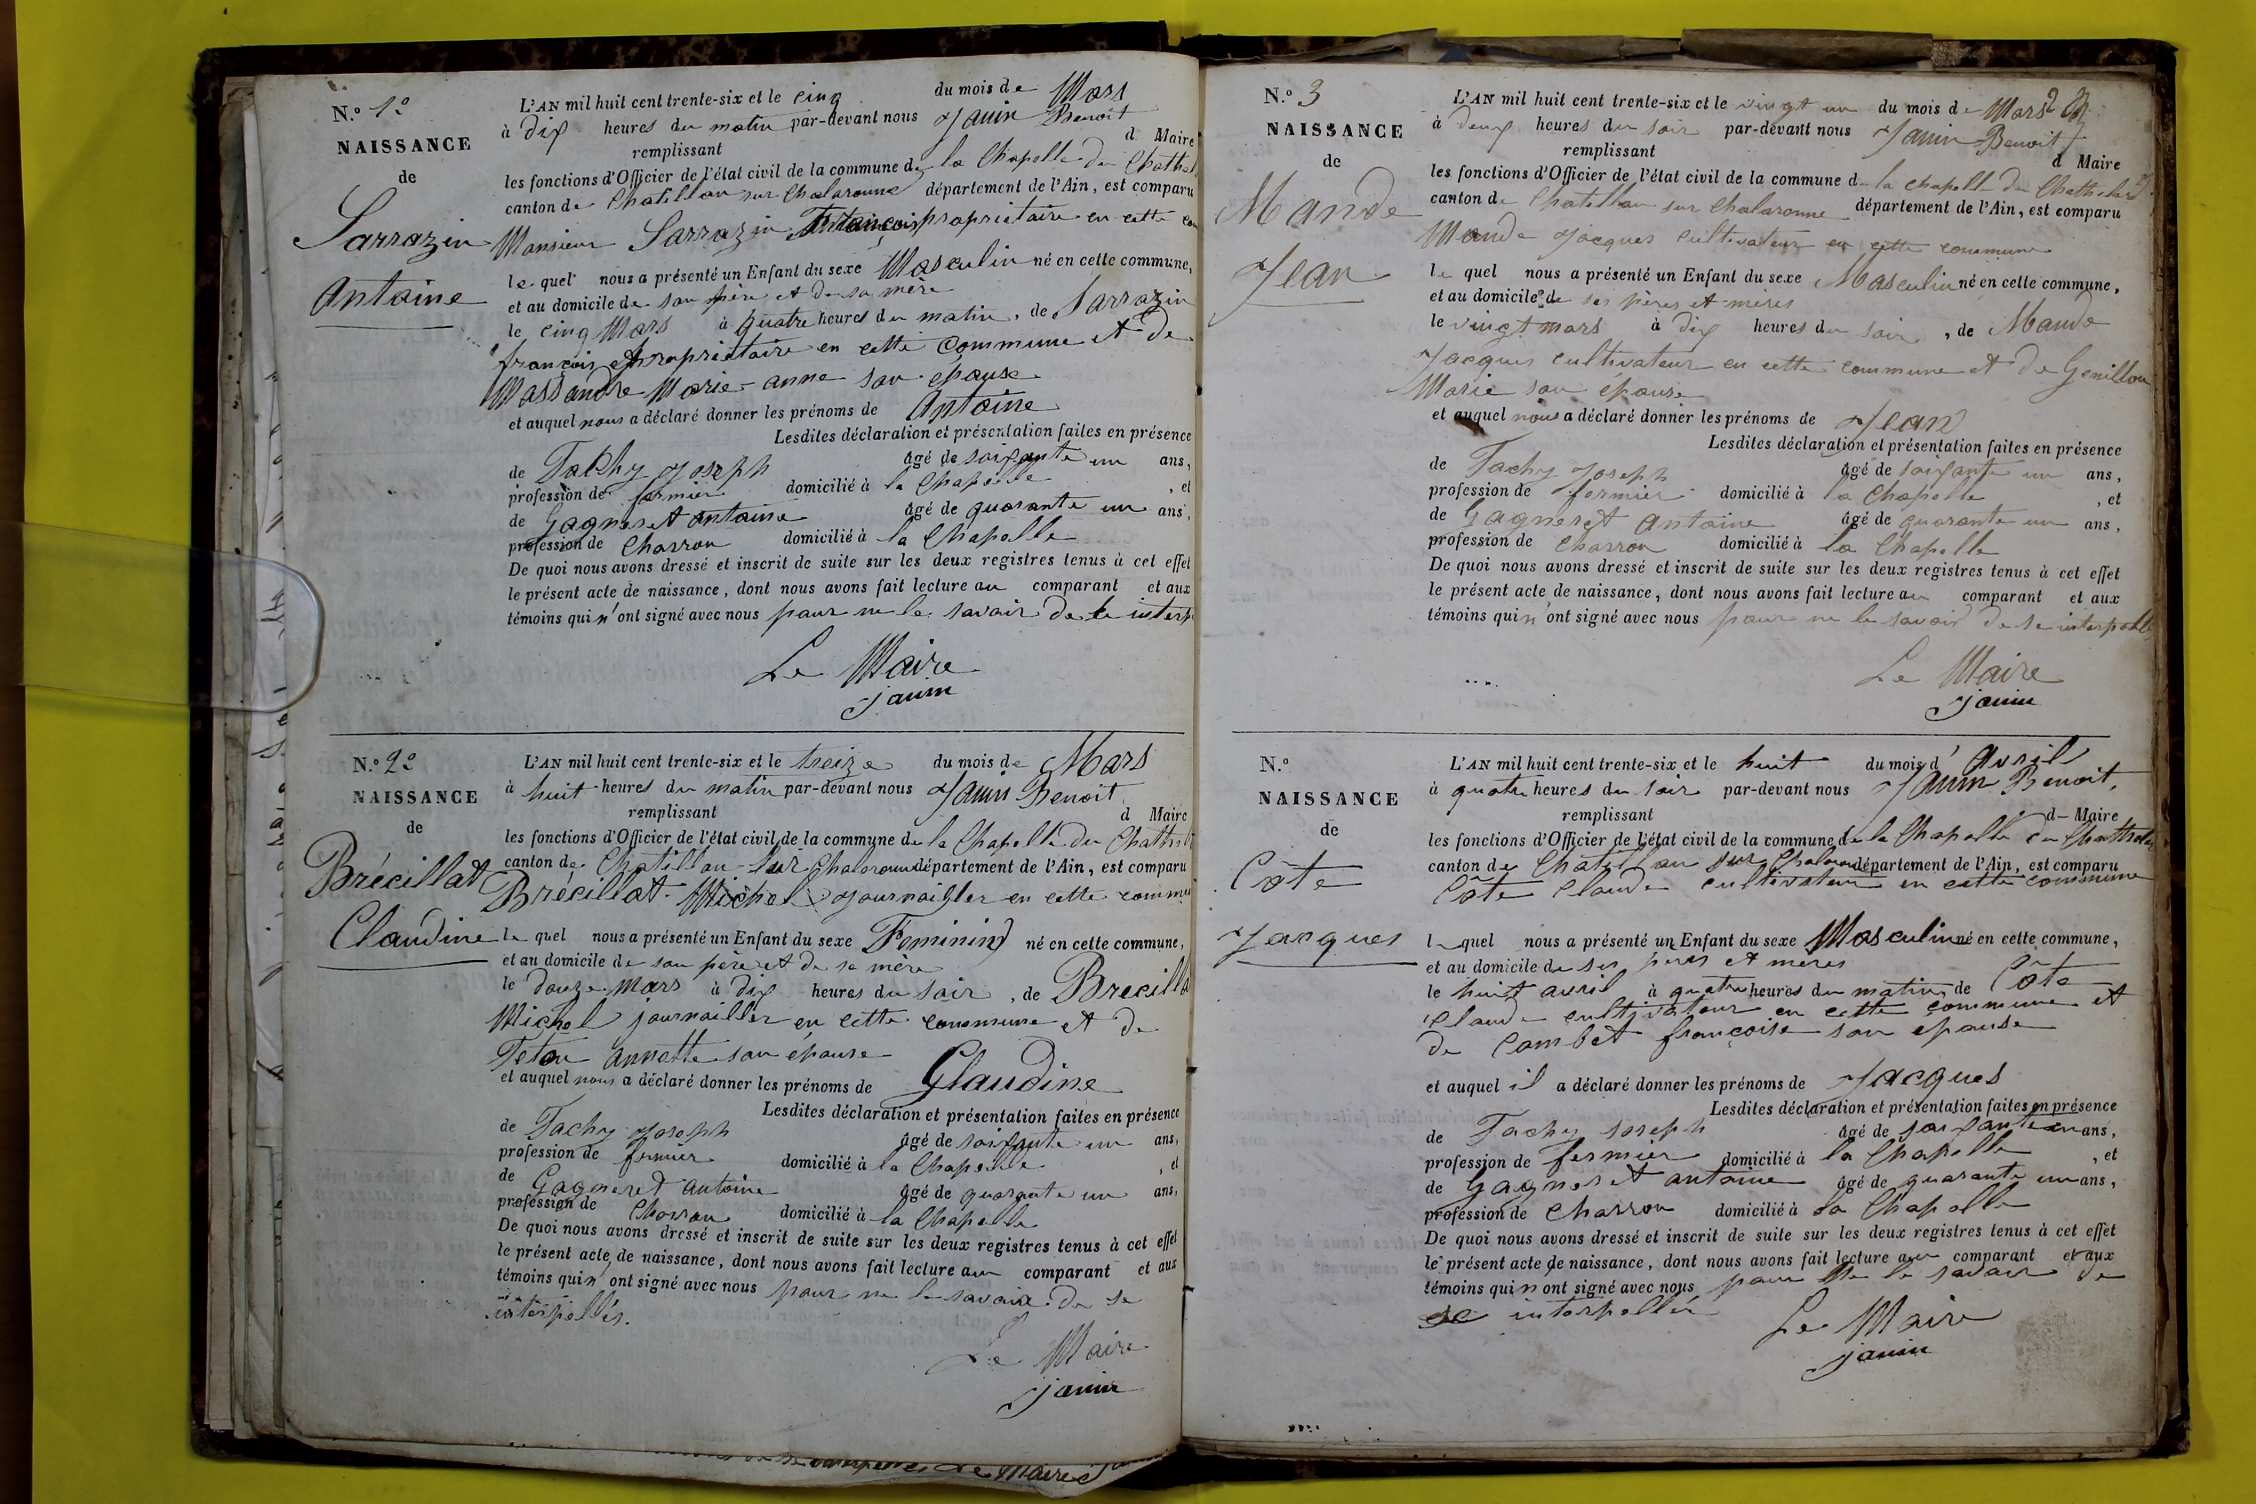 N.º 1º
NAISSANCE
de
Sarrazin
Antoine
L'AN mil huit cent trente-six et le cinq du mois de Mars
à dix heures du matin par-devant nous Janin Benoit
d Maire
remplissant
les fonctions d'Officier de l'état civil de la commune de la Chapelle du Chathel
canton de Chatillon sur Chalaronne département de l'Ain, est comparu
Monsieur Sarrazin François propriétaire en cette com
le quel nous a présenté un Enfant du sexe Masculin né en cette commune,
et au domicile de son père et de sa mère
le cinq Mars à quatre heures du matin, de Sarrazin
françois propriétaire en cette commune et de
Massandre Marie-anne son epouse
et auquel nous a déclaré donner les prénoms de Antoine
Lesdites déclaration et présentation faites en présence
de Tachy Joseph âgé de soixante un ans,
profession de fermier domicilié à la Chapelle, et
de Gagneret Antoine âgé de quarante un ans,
profession de Charron domicilié à la Chapelle
De quoi nous avons dressé et inscrit de suite sur les deux registres tenus à cet effet
le présent acte de naissance, dont nous avons fait lecture au comparant et aux
témoins qui n'ont signé avec nous pour ne le savoir de le interp
Le Maire
Janin
N.º 2º
NAISSANCE
de
Brécillat
Claudine
L'AN mil huit cent trente-six et le treize du mois de Mars
à huit heures du matin par-devant nous Janin Benoit
d Maire
remplissant
les fonctions d'Officier de l'état civil de la commune de la Chapelle du Chathel
canton de Chatillon sur Chalaronne département de l'Ain, est comparu
Brécillat Michel journailler en cette commu
le quel nous a présenté un Enfant du sexe Feminin né en cette commune,
et au domicile de son père et de sa mère
le douze Mars à dix heures du soir, de Brecilla
Michel journailler en cette commune et de
Tetou annette son épouse
et auquel nous a déclaré donner les prénoms de Claudine
Lesdites déclaration et présentation faites en présence
de Tachy Joseph âgé de soixante un ans,
profession de fermier domicilié à la Chapelle, et
de Gagneret antoine âgé de quarante un ans,
profession de Charron domicilié à la Chapelle
De quoi nous avons dressé et inscrit de suite sur les deux registres tenus à cet effet
le présent acte de naissance, dont nous avons fait lecture au comparant et aux
témoins qui n'ont signé avec nous pour ne le savoir de se
interpellés.
Le Maire
Janin
N.º 3
NAISSANCE
de
Mande
Jean
L'AN mil huit cent trente-six et le vingt un du mois de Mars
à deux heures du soir par-devant nous Janin Benoit
d Maire
remplissant
les fonctions d'Officier de l'état civil de la commune de la chapelle du Chathelard
canton de Chatillon sur Chalaronne département de l'Ain, est comparu
Mande Jacques cultivateur en cette commune
le quel nous a présenté un Enfant du sexe Masculin né en cette commune,
et au domicile de ses pères et mères
le vingt mars à dix heures du soir, de Mande
Jacques cultivateur en cette commune et de Genillon
Marie son epouse
et auquel nous a déclaré donner les prénoms de Jean
Lesdites déclaration et présentation faites en présence
de Tachy Joseph âgé de soixante un ans,
profession de fermier domicilié à la Chapelle, et
de Gagneret Antoine âgé de quarante un ans,
profession de Charron domicilié à la Chapelle
De quoi nous avons dressé et inscrit de suite sur les deux registres tenus à cet effet
le présent acte de naissance, dont nous avons fait lecture au comparant et aux
témoins qui n'ont signé avec nous pour ne le savoir de se interpellé
Le Maire
Janin
N.º
NAISSANCE
de
Côte
Jacques
L'AN mil huit cent trente-six et le huit du mois d'Avril
à quatre heures du soir par-devant nous Janin Benoit,
d Maire
remplissant
les fonctions d'Officier de l'état civil de la commune de la Chapelle du Chathelar
canton de Chatillon sur Chalaronne département de l'Ain, est comparu
Côte Claude cultivateur en cette commune
le quel nous a présenté un Enfant du sexe Masculin né en cette commune,
et au domicile de ses peres et mères
le huit avril à quatre heures du matin, de Côte
Claude cultivateur en cette commune et
de Combet françoise son epouse
et auquel il a déclaré donner les prénoms de Jacques
Lesdites déclaration et présentation faites en présence
de Tachy Joseph âgé de soixante un ans,
profession de fermier domicilié à la Chapelle, et
de Gagneret antoine âgé de quarante un ans,
profession de Charron domicilié à la Chapelle
De quoi nous avons dressé et inscrit de suite sur les deux registres tenus à cet effet
le présent acte de naissance, dont nous avons fait lecture au comparant et aux
témoins qui n'ont signé avec nous pour ne le savoir de
se interpellés
Le Maire
Janin